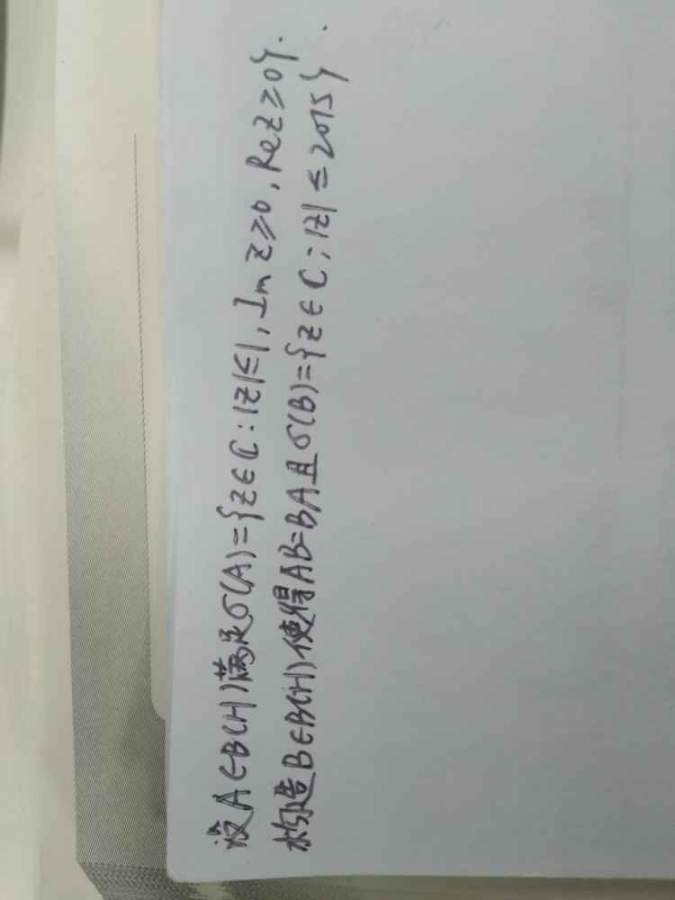 设A∈B(H)满足σ(A)={z∈ℂ:|z|≤1, Im z≥0, Re z≥0}.
构造B∈B(H)使得AB=BA且σ(B)={z∈ℂ:|z|≤2015}.